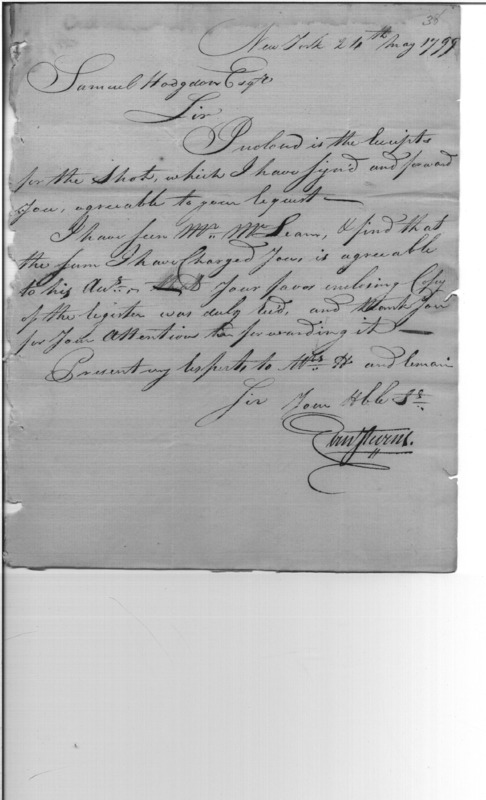 36
New York 24th May 1799
Samuel Hodgdon Esqr
Sir
Inclosed is the Receipts
for the Shot, which I have sign'd and forward
You, agreeable to your request —
I have seen Mr Mc Lean, & find that
the sum I have Charged You is agreeable
to his Your favor enclosing Copy
of the register was duly recd, and thank you
for Your Attention forwarding it —
Present my Respects to Mrs H and remain
Sir Your Hble St
Eben Stevens.